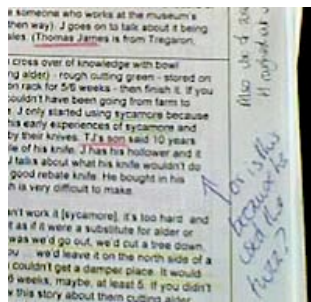 someone who works at the museum's
then way). J goes on to talk about it being
ales. (Thomas James is from Tregaron,
cross over of knowledge with bowl
ng alder) - rough cutting green - stored on
on rack for 5/6 weeks - then finish it. If you
ouldn't have been going from farm to
. J only started using sycamore because
his early experiences of sycamore and
by their knives. TJ's son said 10 years
e of his knife. J has his hollower and it
J talks about what his knife wouldn't do
good rebate knife. He bought in his
n is very difficult to make.
an't work it [sycamore], it's too hard and
t as if it were a substitute for alder or
was we'd go out, we'd cut a tree down,
ou ... we'd leave it on the north side of a
couldn't get a damper place. It would
weeks, maybe, at least 5. If you didn't
this story about them cutting alder
Also
or is this
because he
used the